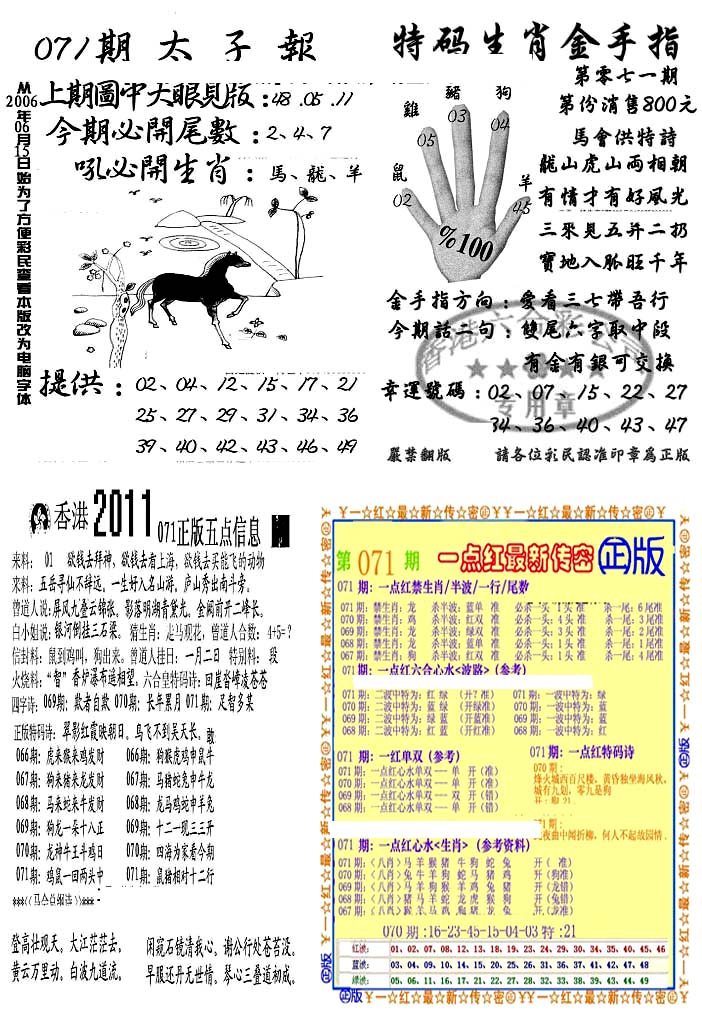 071期 太子報
从2006年06月15日始为了方便彩民查看本版改为电脑字体
上期圖中大眼見版：48.05.11
今期必開尾數：2、4、7
吼必開生肖：馬、龍、羊
提供：02、04、12、15、17、21
25、27、29、31、34、36
39、40、42、43、46、49
特码生肖金手指
第零七一期
第份消售800元
雞 豬 狗
鼠 羊
05 03 04
02 45
%100
馬會供特詩
龍山虎山兩相朝
有情才有好風光
三來見五并二扔
寶地入脈旺千年
金手指方向：愛看三七帶吾行
今期話二句：雙尾六字取中段
有金有銀可交换
香港六合彩公司
专用章
幸運號碼：02、07、15、22、27
34、36、40、43、47
嚴禁翻版 請各位彩民認准印章爲正版
香港2011 071正版五点信息
来料： 01 欲钱去拜神，欲钱去看上海，欲钱去买能飞的动物
来料：五岳寻仙不辞远。一生好入名山游，庐山秀出南斗旁。
曾道人说:屏风九叠云锦张，影落明湖青黛光。金阙前开二峰长。
白小姐说:银河倒挂三石梁。猜生肖：走马观花，曾道人合数：4+5=？
信封料：鼠到鸡叫，狗出来。曾道人挂日：一月二日 特别料： 段
火烧料：“智”香炉瀑布遥相望。六合皇特码诗：回崖沓嶂凌苍苍
四字诗：069期：欺者自欺 070期：长年黑月 071期：足智多某
正版特码诗： 翠影红霞映朝日。鸟飞不到吴天长。
066期：虎来猴来鸡发财 066期：狗猴虎鸡申鼠牛
067期：狗来猪来龙发财 067期：马猪蛇兔申牛龙
068期：马来蛇来牛发财 068期：龙马鸡蛇申羊兔
069期：狗龙一朵十八正 069期：十二一现三三开
070期：龙神牛王斗鸡日 070期：四海为家看今期
071期：鸡鼠一回两头中 071期：鼠猪相对十二行
登高壮观天。大江茫茫去。 闲窥石镜清我心。谢公行处苍苔没。
黄云万里动。白波九道流。 早服还丹无世情。琴心三叠道初成。
丫一☆红☆最☆新☆传☆密㊣
第071期 一点红最新传密 ㊣版
071期：一点红禁生肖/半波/一行/尾数
071期：禁生肖：龙 杀半波：蓝单 准 杀一尾：6尾准
070期：禁生肖：鸡 杀半波：红双 准 必杀一头：4头 准 杀一尾：3尾准
069期：禁生肖：龙 杀半波：绿双 准 必杀一头：3头 准 杀一尾：2尾准
068期：禁生肖：龙 杀半波：蓝单 准 必杀一头：1头 准 杀一尾：8尾准
067期：禁生肖：狗 杀半波：红单 准 必杀一头：1头 准 杀一尾：4尾准
071期：一点红六合心水<波路>（参考）
071期：二波中特为：红 绿 （开？准） 071期：一波中特为：绿
070期：二波中特为：蓝 绿 （开绿准） 070期：一波中特为：蓝
069期：二波中特为：绿 蓝 （开蓝准） 069期：一波中特为：蓝
068期：二波中特为：蓝 红 （开红准） 068期：一波中特为：红
071期：一红单双（参考）
071期：一点红心水单双——单 开（准）
070期：一点红心水单双——单 开（准）
069期：一点红心水单双——双 开（错）
068期：一点红心水单双——单 开（错）
071期：一点红特码诗
070期：
烽火城西百尺楼，黄昏独坐海风秋，
城有九划，零九是狗
071期：
夜曲中闻折柳，何人不起故园情．
071期：一点红心水<生肖>（参考资料）
071期：〈八肖〉马 羊 猴 猪 牛 狗 蛇 兔 开（ 准）
070期：〈八肖〉兔 牛 羊 狗 蛇 马 猪 鸡 开（狗准）
069期：〈八肖〉马 羊 狗 猴 羊 鸡 兔 鼠 开（龙错）
068期：〈八肖〉马 猪 羊 蛇 龙 虎 猴 狗 开（兔错）
070期：16-23-45-15-04-03 特：21
红波： 01、02、07、08、12、13、18、19、23、24、29、30、34、35、40、45、46
蓝波： 03、04、09、10、14、15、20、25、26、31、36、37、41、42、47、48
绿波： 05、06、11、16、17、21、22、27、28、32、33、38、39、43、44、49
㊣版 丫一☆红☆最☆新☆传☆密㊣